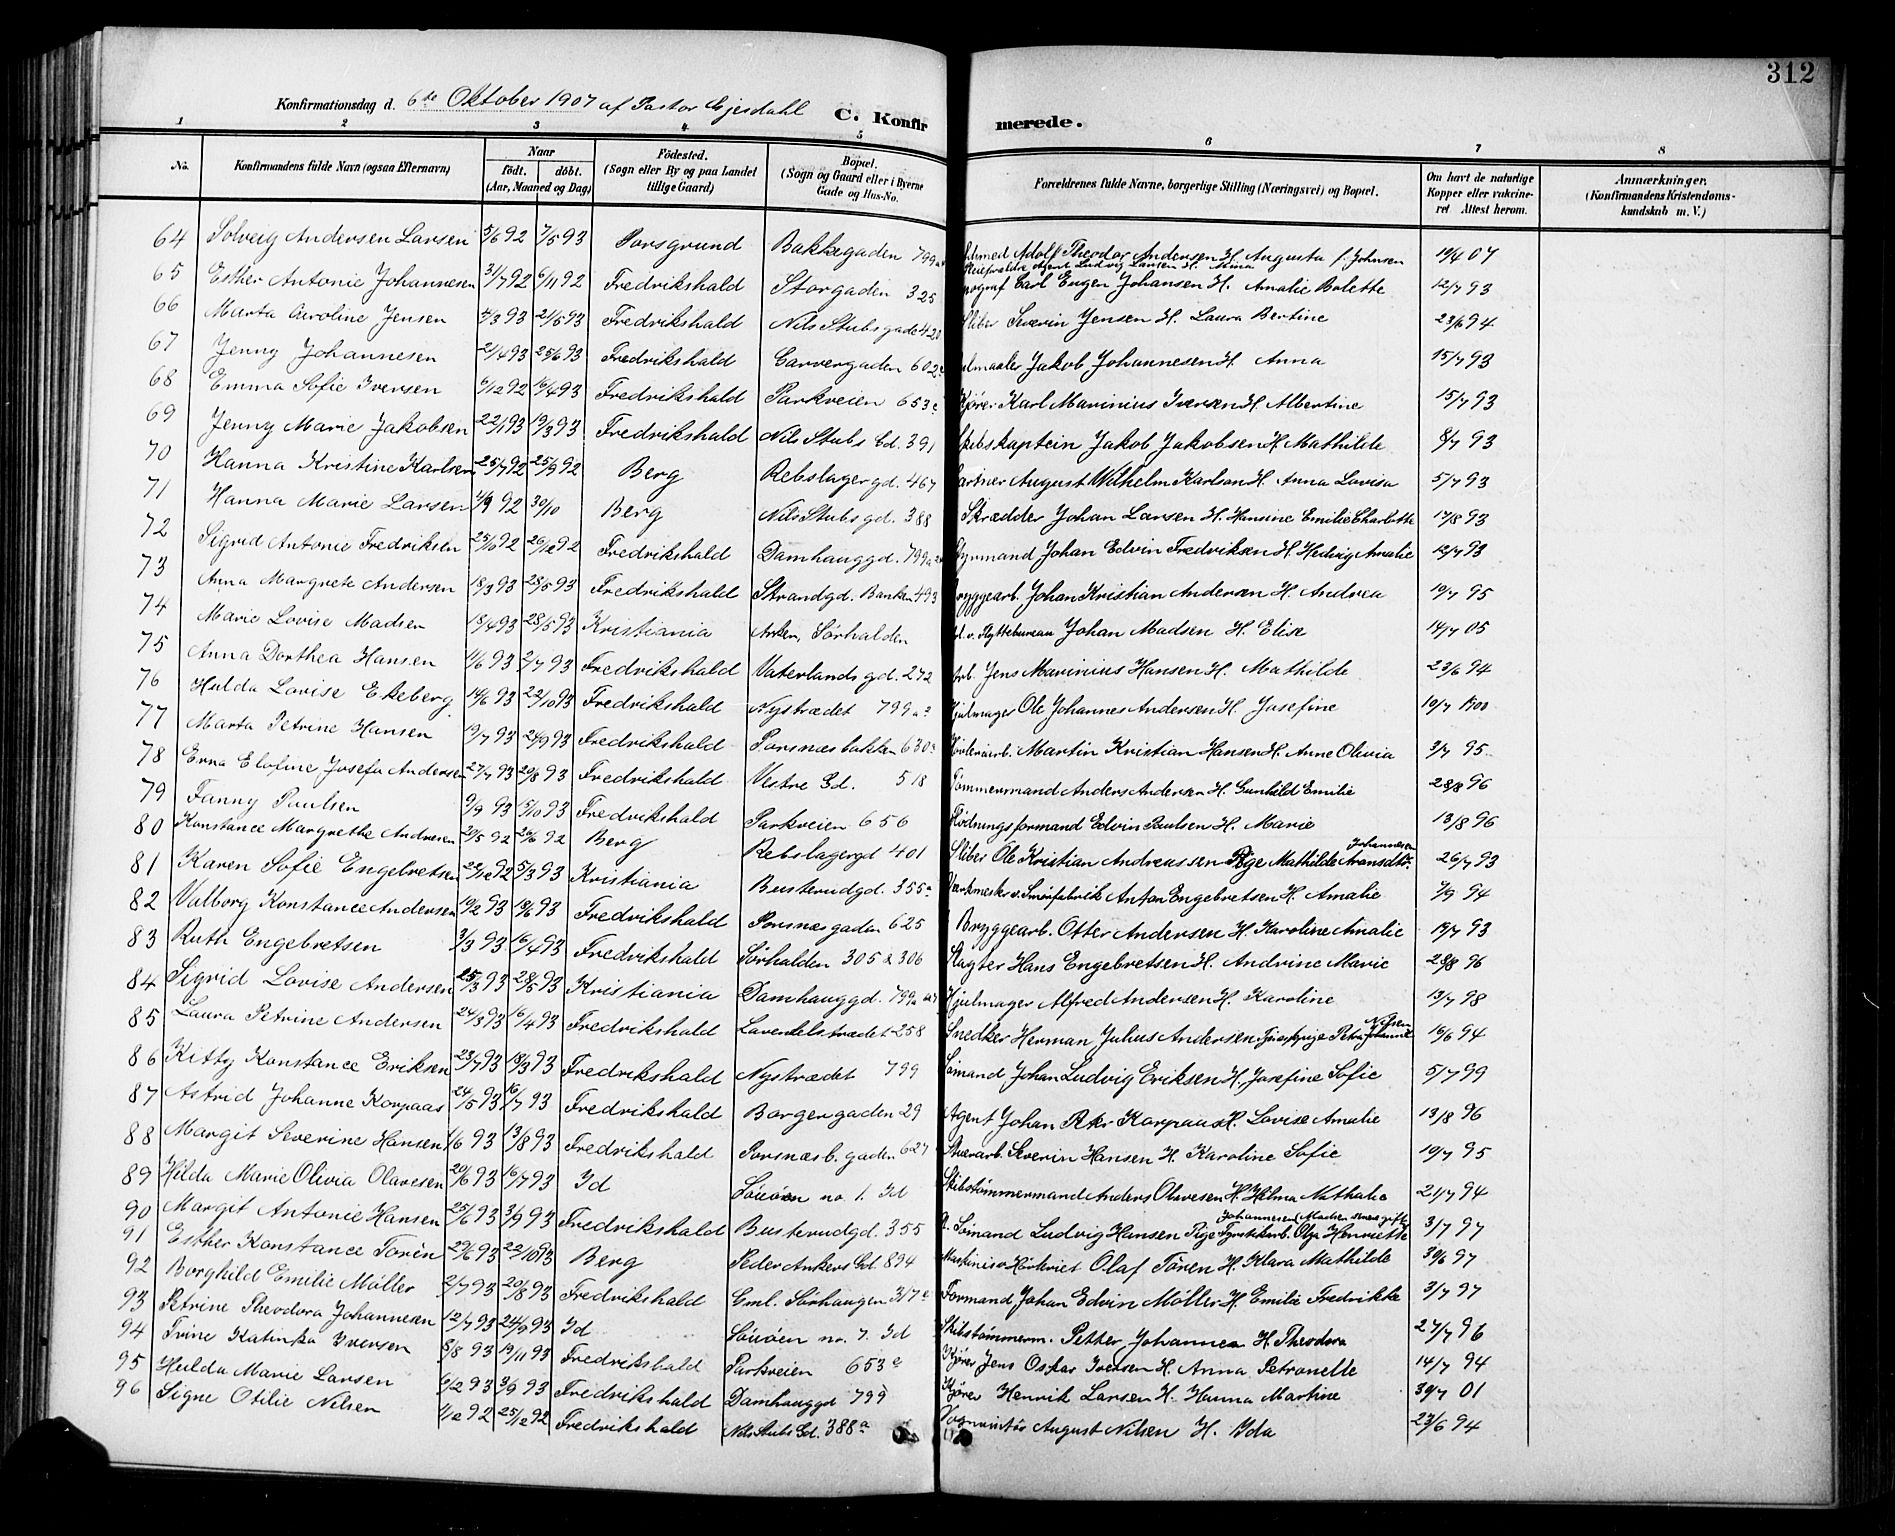 312
Konfirmationsdag d. 6te Oktober 1907 af Pastor Gjesdahl
C. Konfirmerede.
1 2 3 4 5 6 7 8
No. | Konfirmandens fulde Navn (ogsaa Efternavn) | Naar födt. döbt. (Aar, Maaned og Dag) | Födested. (Sogn eller By og paa Landet tillige Gaard) | Bopæl. (Sogn og Gaard eller i Byerne Gade og Hus-No. | Forældrenes fulde Navne, borgerlige Stilling (Næringsvei) og Bopæl. | Om havt de naturlige Kopper eller vakcineret Attest herom. | Anmærkninger. (Konfirmandens Kristendomskundskab m. V.)
64 Solveig Andersen Larsen 5/6 92 7/5 93 Porsgrund Bakkegaden 799 Adolf Theodor Andersen H. Augusta f. Johnsen 12/4 07
Pleieforældre Agent Ludvig Larsen H. Alma
65 Esther Antonie Johannesen 31/7 92 6/11 92 Fredrikshald Storgaden 325 Carl Eugen Johansen H. Amalie Bolette 12/7 93
66 Marta Caroline Jensen 4/3 93 21/5 93 Fredrikshald Nils Stubs gade 428 Sliber Severin Jensen H. Laura Bertine 23/6 94
67 Jenny Johannesen 21/4 93 25/6 93 Fredrikshald Garvergaden 602 Jakob Johannesen H. Anna 15/7 93
68 Emma Sofie Iversen 6/12 92 16/4 93 Fredrikshald Parkveien 653 Kjører Karl Marinius Iversen H. Albertine 15/7 93
69 Jenny Marie Jakobsen 22/1 93 19/3 93 Fredrikshald Nils Stubs Gd. 391 Skibskaptein Jakob Jakobsen H. Mathilde 8/7 93
70 Hanna Kristine Karlsen 25/7 92 25/9 92 Berg Rebslagergd. 467 Gartner August Wilhelm Karlson H. Anna Lovisa 5/7 93
71 Hanna Marie Larsen 4/9 92 30/10 Berg Nils Stubs gd. 388 Skrædder Johan Larsen H. Hansine Emilie Charlotte 17/8 93
72 Sigrid Antonie Fredriksen 25/10 92 26/12 92 Fredrikshald Damhauggd. 799 Styrmand Johan Edvin Fredriksen H. Hedvig Amalie 12/7 93
73 Anna Margrete Andersen 18/3 93 28/5 93 Fredrikshald Strandgd. Banken 493 Bryggearb. Johan Kristian Andersen H. Andrea 19/7 95
74 Marie Lovise Madsen 15/4 93 28/5 93 Kristiania Anken, Sørhalden v. Flyttebureau Johan Madsen H. Elise 14/7 05
75 Anna Dorthea Hansen 11/6 93 2/7 93 Fredrikshald Vaterlands gd. 272 Arb. Jens Marinius Hansen H. Mathilde 23/6 94
76 Hulda Lovise Ekeberg 14/6 93 22/10 93 Fredrikshald Nystrædet 799 Hjulmager Ole Johannes Andersen H. Josefine 10/7 1900
77 Marta Petrine Hansen 19/7 93 24/9 93 Fredrikshald Porsnæsbakken 630 Martin Kristian Hansen H. Anne Olivia 3/7 95
78 Erna Elofine Josefa Andersen 27/7 93 20/8 93 Fredrikshald Vestre Gd. 518 Tømmermand Anders Andersen H. Gunhild Emilie 28/8 96
79 Fanny Paulsen 9/9 93 5/10 93 Fredrikshald Parkveien 656 Flødningsformand Edvin Paulsen H. Marie 13/8 96
80 Konstance Margrethe Andresen 20/5 92 26/6 92 Berg Rebslagergd 401 Sliber Ole Kristian Andreassen Pige Mathilde Johannesen Aronsdtr. 26/7 93
81 Karen Sofie Engebretsen 22/12 92 5/3 93 Kristiania Busterudgd. 355 Værkmester v. Smørfabrik Anton Engebretsen H. Amalie 7/9 94
82 Valborg Konstance Andersen 19/2 93 18/6 93 Fredrikshald Porsnæsgaden 625 Bryggearb. Otter Andersen H. Karoline Amalie 17/7 93
83 Ruth Engebretsen 3/3 93 16/4 93 Fredrikshald Sørhalden 305 & 306 Slagter Hans Engebretsen H. Andrine Marie 28/8 96
84 Sigrid Lovise Andersen 25/3 93 28/5 93 Kristiania Damhauggd. 799 Hjulmager Alfred Andersen H. Karoline 13/7 98
85 Laura Petrine Andersen 24/3 93 16/4 93 Fredrikshald Lavendelstrædet 258 Snedker Herman Julius Andersen Petra Johanne Nilsen 16/6 94
86 Kitty Konstance Eriksen 23/7 93 18/3 93 Fredrikshald Nystrædet 799 Sømand Johan Ludvig Eriksen H. Josefine Sofie 5/7 99
87 Astrid Johanne Korpaas 24/5 93 16/7 93 Fredrikshald Borgergaden 29 Agent Johan Rkr Korpaas H. Lovise Amalie 13/8 96
88 Margit Severine Hansen 1/6 93 13/8 93 Fredrikshald Porsnæsb. gaden 627 Severin Hansen H. Karoline Sofie 19/7 95
89 Hilda Marie Olivia Olavesen 20/6 93 16/7 93 Id Sauøen no. 1. Id Skibstømmermand Anders Olavesen H. Hilma Nathalie 21/7 94
90 Margit Antonie Hansen 25/6 93 3/9 93 Fredrikshald Busterudgd. 355 Sømand Ludvig Hansen Pige Fyrstikarb. Olga Henriette Johannesen (Madsen senere gift) 3/7 97
91 Esther Konstance Torén 29/6 93 22/10 93 Berg Peder Ankers Gd. 894 Maskinist Olaf Toren H. Klara Mathilde 30/6 97
92 Borghild Emilie Møller 2/7 93 20/8 93 Fredrikshald Gml. Sørhaugen 317 Formand Johan Edvin Møller H. Emilie Fredrikke 3/7 97
93 Petrine Theodora Johannesen 12/7 93 24/9 93 Id Sauøen no. 7. Id Skibstømmerm. Petter Johannes H. Theodora 27/7 96
94 Trine Katinka Iversen 5/8 93 19/11 93 Fredrikshald Parkveien 653 Kjører Jens Oskar Iversen H. Anna Petronelle 14/7 94
95 Hulda Marie Larsen 6/2 93 3/9 93 Fredrikshald Damhauggd 799 Kjører Henrik Larsen H. Hanna Martine 30/7 01
96 Signe Otilie Nilsen 1/12 92 25/12 92 Fredrikshald Nils Stubs Gd. 388a August Nilsen H. Ida 23/6 94